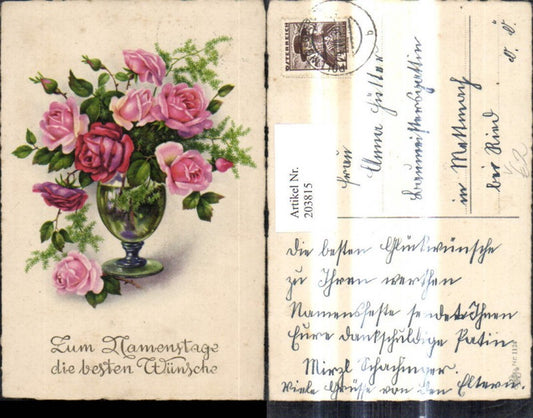 Zum Namenstage
die besten Wünsche
ÖSTERREICH
Artikel Nr.
203815
Frau
Anna Hütter
Baumeistersgattin
in Mettmach
bei Ried.
Die besten Glückwünsche
zu Ihren werthen
Namensfeste sendet Ihnen
Eure dankschuldige Patin
Mirzl Schachinger.
Viele Grüsse von den Eltern.